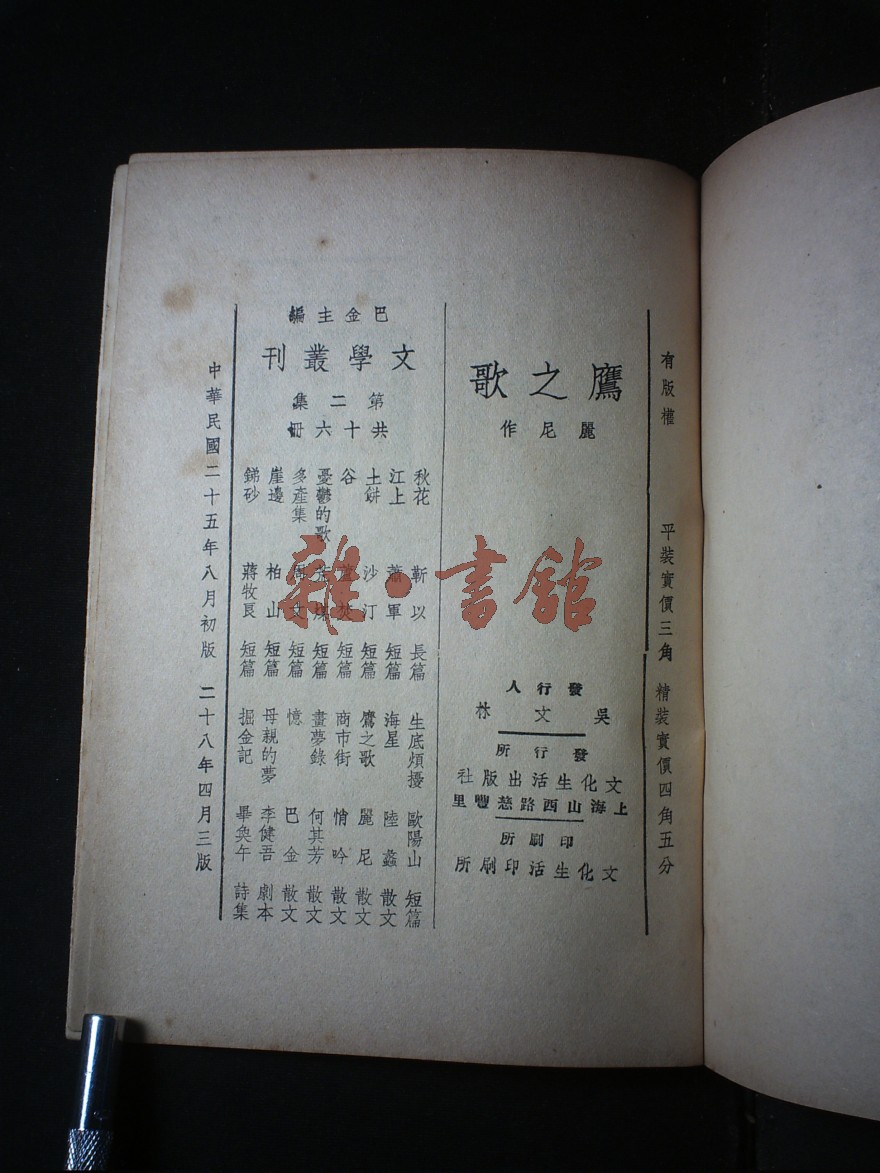 有版權 平裝實價三角 精裝實價四角五分
鷹之歌
麗尼作
發行人
吳文林
發行所
文化生活出版社
上海山西路慈豐里
印刷所
文化生活印刷所
巴金主編
文學叢刊
第二集
共十六冊
秋花 靳以 長篇 生底煩擾 歐陽山 短篇
江上 蕭軍 短篇 海星 陸蠡 散文
土餅 沙汀 短篇 鷹之歌 麗尼 散文
谷 蘆焚 短篇 商市街 悄吟 散文
憂鬱的歌 荒煤 短篇 畫夢錄 何其芳 散文
多產集 周文 短篇 憶 巴金 散文
崖邊 柏山 短篇 母親的夢 李健吾 劇本
銻砂 蔣牧良 短篇 掘金記 畢奐午 詩集
中華民國二十五年八月初版 二十八年四月三版
雜·書館